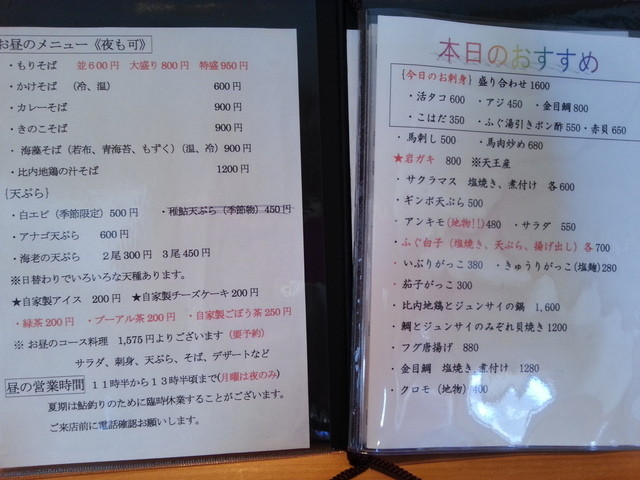 お昼のメニュー《夜も可》
・もりそば 並600円 大盛り800円 特盛950円
・かけそば (冷、温) 600円
・カレーそば 900円
・きのこそば 900円
・海藻そば(若布、青海苔、もずく)(温、冷)900円
・比内地鶏の汁そば 1200円
{天ぷら}
・白エビ(季節限定)500円 ・稚鮎天ぷら(季節物)450円
・アナゴ天ぷら 600円
・海老の天ぷら 2尾300円 3尾450円
※日替わりでいろいろな天種あります。
★自家製アイス 200円 ★自家製チーズケーキ200円
・緑茶200円 ・プーアル茶200円 ・自家製ごぼう茶250円
※ お昼のコース料理 1,575円よりございます(要予約)
サラダ、刺身、天ぷら、そば、デザートなど
昼の営業時間 11時半から13時半頃まで(月曜は夜のみ)
夏期は鮎釣りのために臨時休業することがございます。
ご来店前に電話確認お願いします。
本日のおすすめ
{今日のお刺身} 盛り合わせ1600
・活タコ600 ・アジ450 ・金目鯛800
・こはだ350 ・ふぐ湯引きポン酢550・赤貝650
・馬刺し500 ・馬肉炒め680
★岩ガキ 800 ※天王産
・サクラマス 塩焼き、煮付け 各600
・ギンポ天ぷら500
・アンキモ(地物!!)480 ・サラダ 550
・ふぐ白子(塩焼き、天ぷら、揚げ出し)各700
・いぶりがっこ380 ・きゅうりがっこ(塩麹)280
・茄子がっこ300
・比内地鶏とジュンサイの鍋 1,600
・鯛とジュンサイのみぞれ貝焼き1200
・フグ唐揚げ 880
・金目鯛 塩焼き、煮付け 1280
・クロモ(地物)400